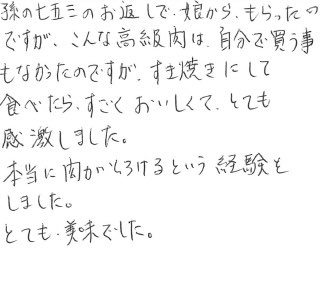 孫の七五三のお返しで、娘から、もらったの
ですが、こんな高級肉は、自分で買う事
もなかったのですが、すき焼きにして
食べたら、すごくおいしくて、とても
感激しました。
本当に肉がとろけるという経験を
しました。
とても、美味でした。